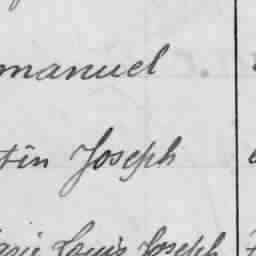 manuel
tin Joseph
Louis Joseph